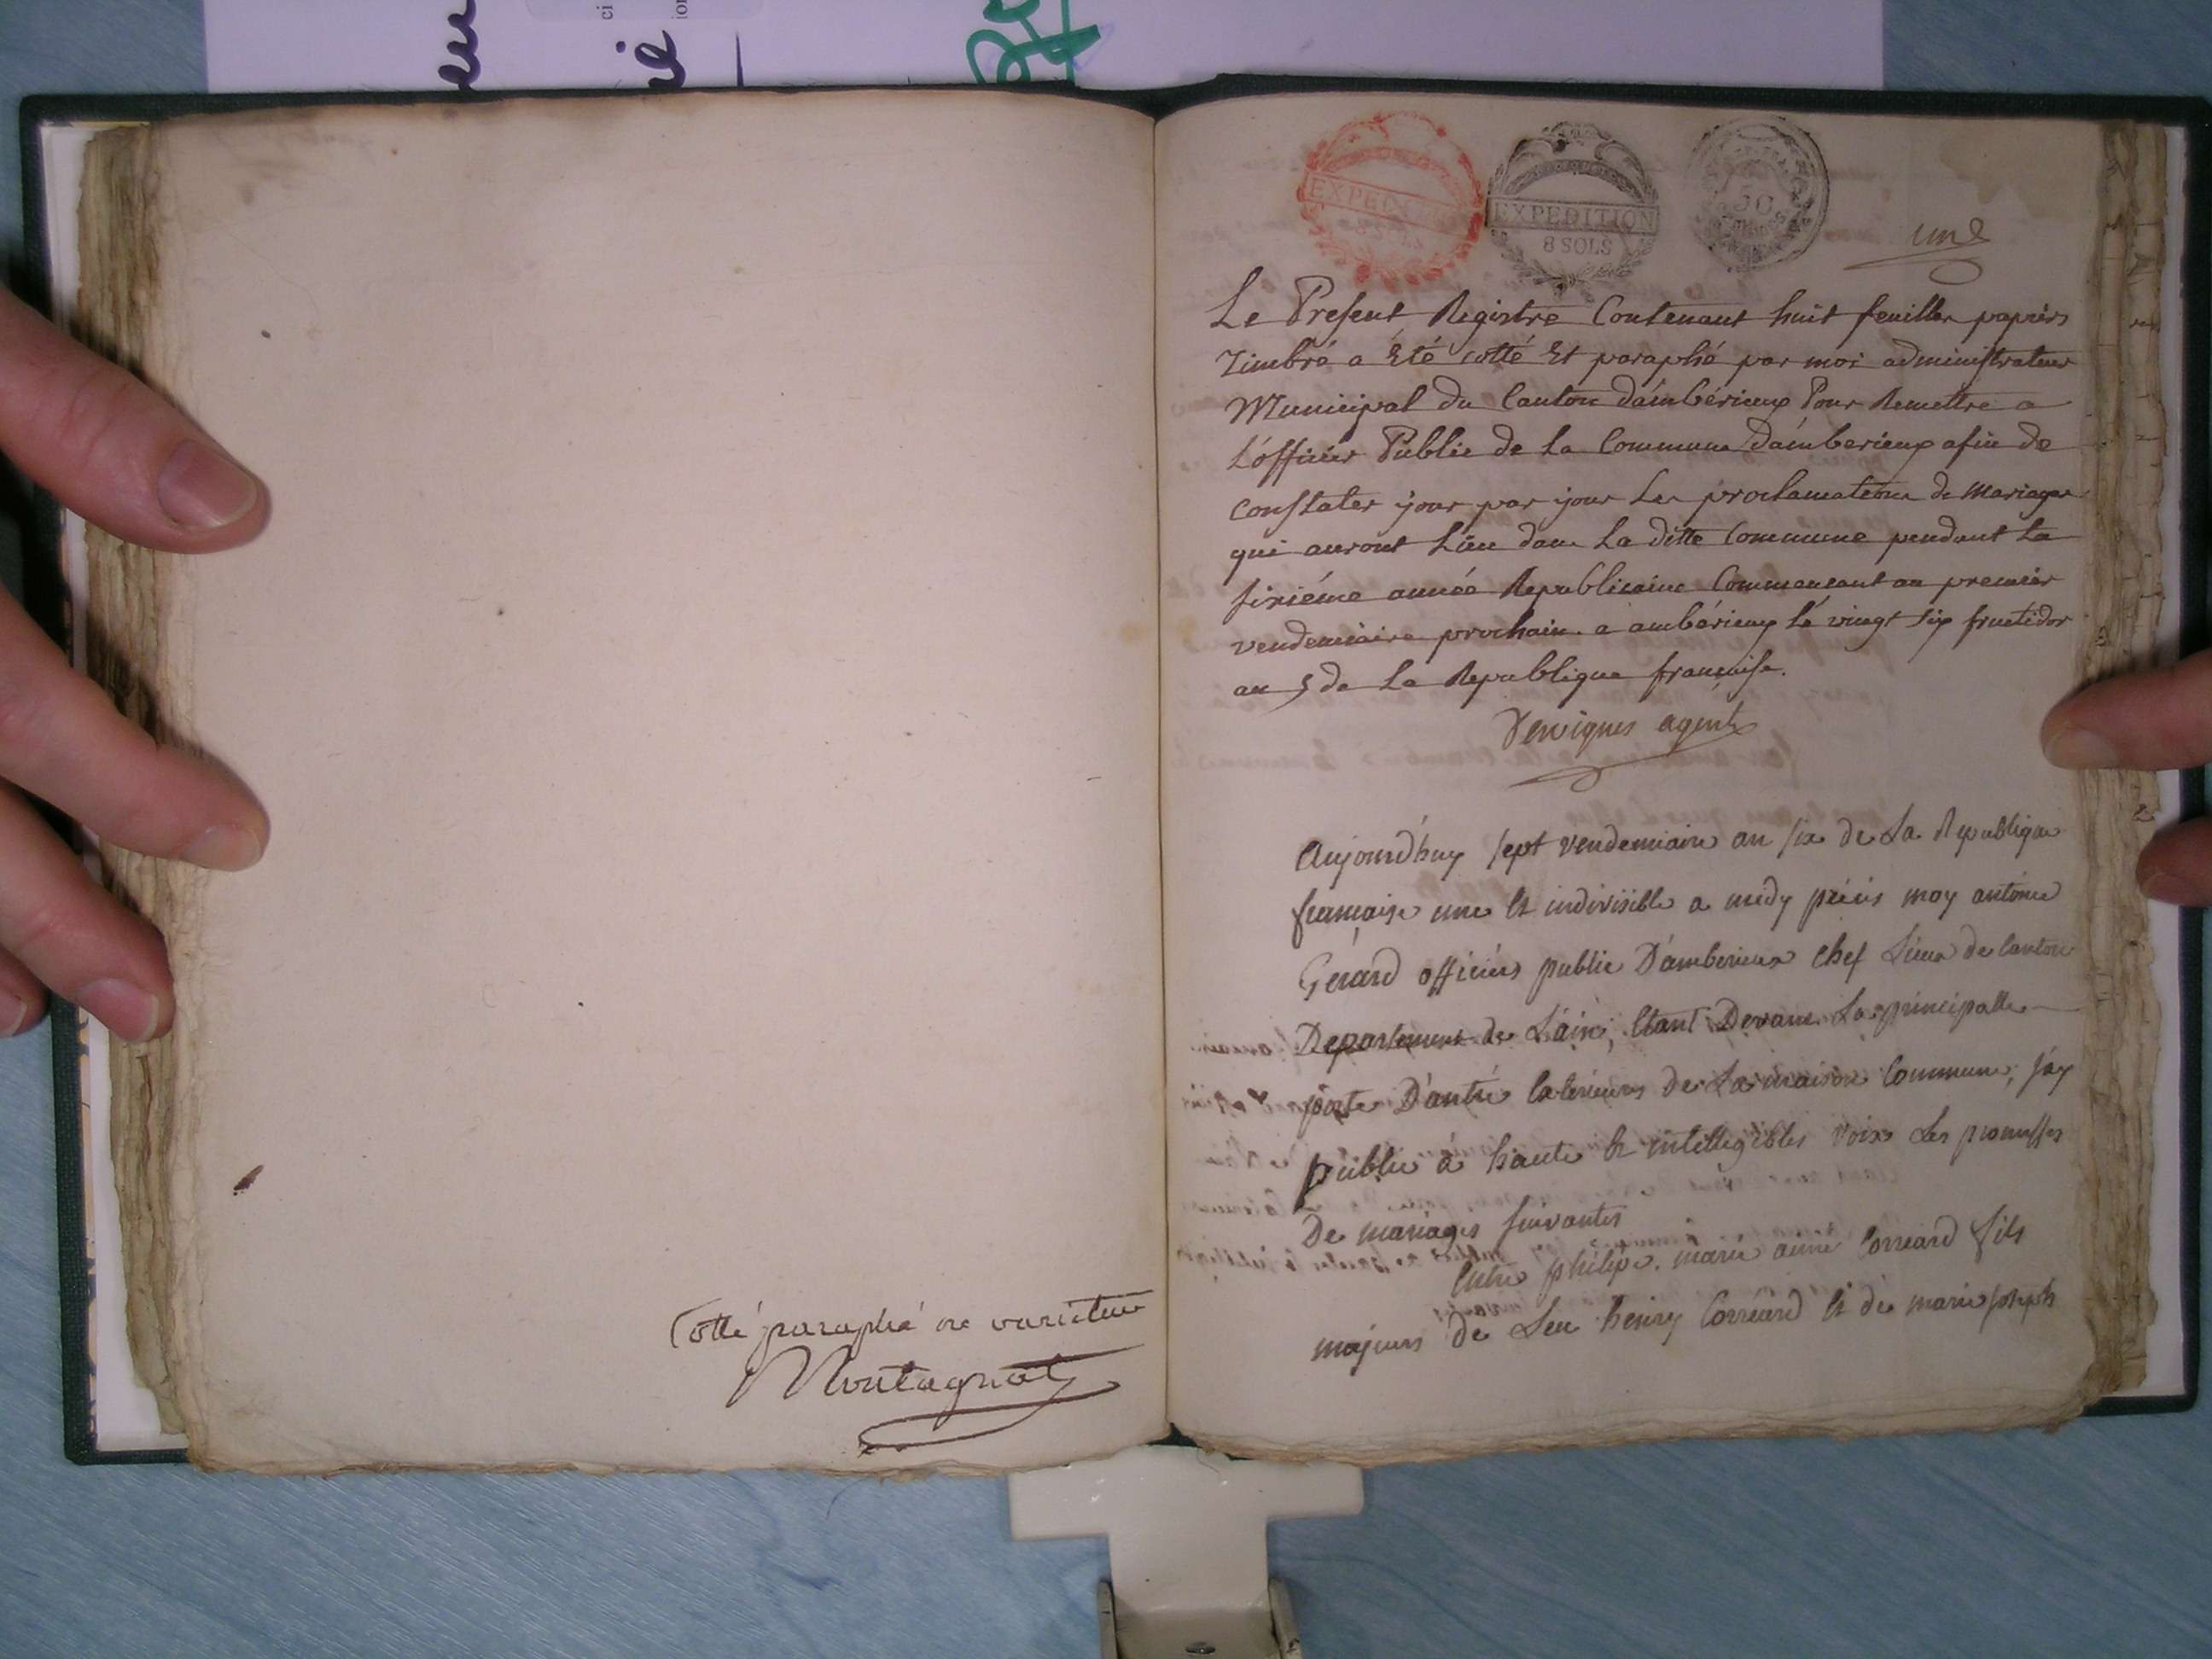 Cotté paraphé ne varietur
Montagnat
EXPEDITION
EXPEDITION
8 SOLS
50
une
Le Present Registre Contenant huit feuilles papiers
Timbré a Eté cotté Et paraphé par moi administrateur
Municipal du Canton d'ambérieux Pour Remettre a
L'officier Public de La Commune D'amberieux afin de
Constater jour par jour Les proclamations de Mariages
qui auront Lieu dans La ditte Commune pendant La
sixiéme année Republicaine Commencant au premier
vendemiaire prochain. a ambérieux Le vingt six fructidor
an 5 de La Republique francaise.
agent
Aujourd'huy sept vendemiaire an six de La Republique
francaise une Et indivisible a midy précis moy antoine
Gerard officiers public D'amberieux chef Lieux de Canton
Departement de L'ain, Etant Devant La principalle
porte D'antré Exterieurs de La maison Commune, j'ay
publié à haute Et intellegibles voixs Les promesses
De mariages suivantes
Entre philipe. marie aimé Corréard fils
majeurs de feu henry Corréard Et de marie joseph